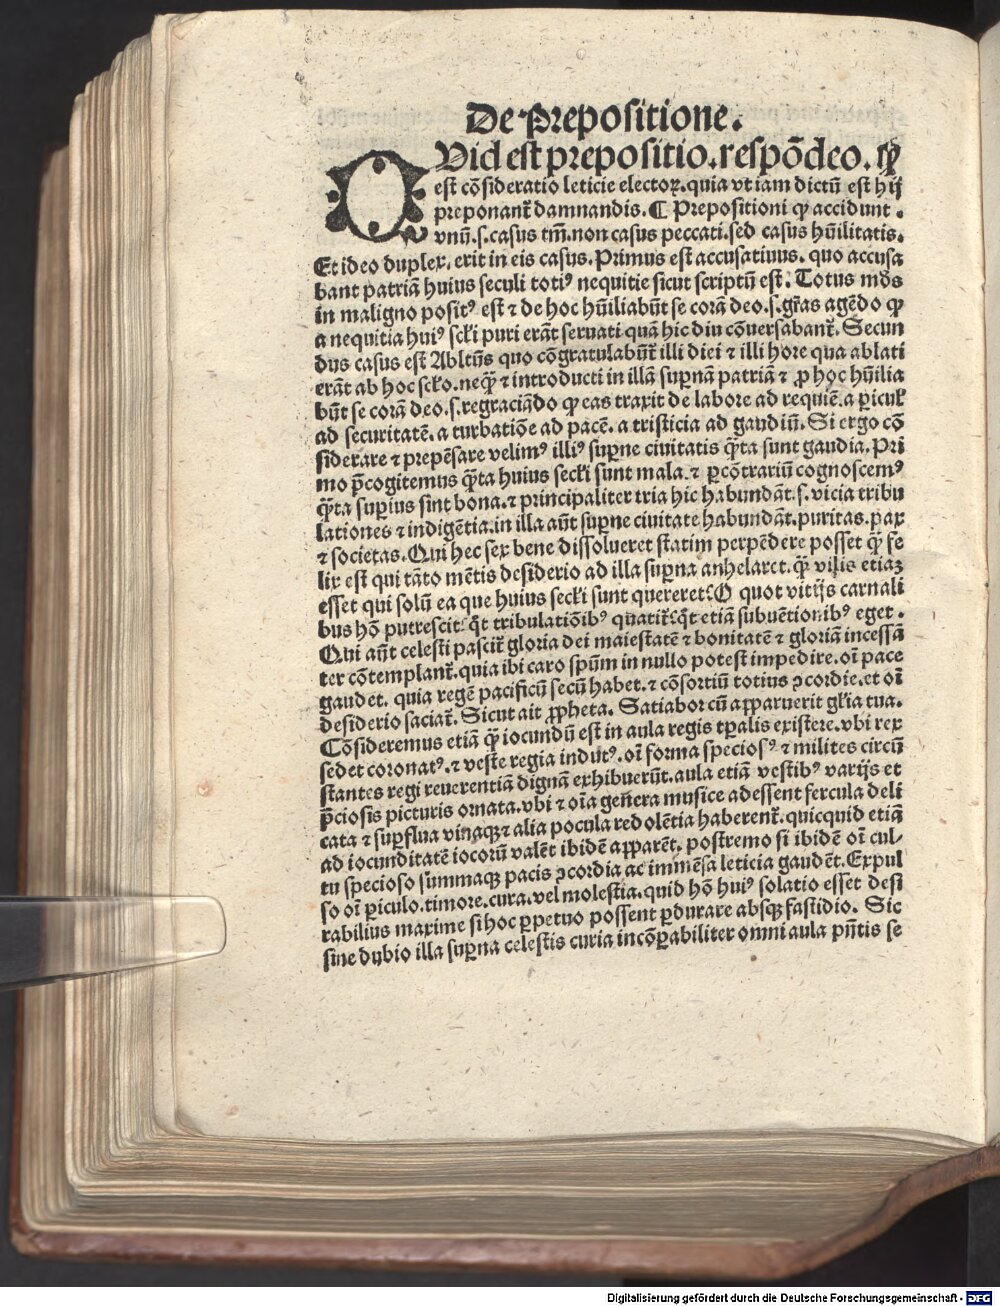 De Prepositione.
QVid est prepositio. respõdeo. ꝙ
est cõsideratio leticie electoꝝ. quia vt iam dictũ est hij
preponant᷑ damnandis. ¶ Prepositioni ꝙ accidunt.
vnũ .s. casus tm̃. non casus peccati. sed casus hũilitatis.
Et ideo duplex. erit in eis casus. Primus est accusatiuus. quo accusa
bant patriã huius seculi totiꝰ nequitie sicut scriptũ est. Totus mũds
in maligno positꝰ est ⁊ de hoc hũiliabũt se corã deo .s. gr̃as agẽdo ꝙ
a nequitia huiꝰ scl̃i puri erãt seruati quã hic diu cõuersabant᷑. Secun
dus casus est Abltũs quo cõgratulabũt᷑ illi diei ⁊ illi hore qua ablati
erãt ab hoc scl̃o. neq̃ ⁊ introducti in illã suꝑnã patriã ⁊ ꝓ hoc hũilia
bũt se corã deo .s. regraciãdo ꝙ eas traxit de labore ad requiẽ. a ꝑicul̃
ad securitatẽ. a turbatiõe ad pacẽ. a tristicia ad gaudiũ. Si ergo cõ
siderare ⁊ prepẽsare velimꝰ illiꝰ suꝑne ciuitatis q̃ta sunt gaudia. Pri
mo p̃cogitemus q̃ta huius secl̃i sunt mala. ⁊ ꝑ cõtrariũ cognoscemꝰ
q̃ta suꝑius sint bona. ⁊ principaliter tria hic habundãt .s. vicia tribu
lationes ⁊ indigẽtia. in illa aũt suꝑne ciuitate habundãt. puritas. pax
⁊ societas. Qui hec sex bene dissolueret statim perpẽdere posset q̃ fe
lix est qui tãto mẽtis desiderio ad illa suꝑna anhelaret. q̃ vilis etiaꝫ
esset qui solũ ea que huius secl̃i sunt quereret? O quot vitijs carnali
bus hõ putrescit? q̃t tribulatiõibꝰ quatit᷑? q̃t etiã subuẽtionibꝰ eget.
Qui aũt celesti pascit᷑ gloria dei maiestatẽ ⁊ bonitatẽ ⁊ gloriã incessã
ter cõtemplant᷑. quia ibi caro spũm in nullo potest impedire. oĩ pace
gaudet. quia regẽ pacificũ secũ habet. ⁊ cõsortiũ totius ꝯcordie. et oĩ
desiderio saciat᷑. Sicut ait ꝓpheta. Satiabor cũ apparuerit gl̃ia tua.
Cõsideremus etiã q̃ iocundũ est in aula regis tꝑalis existere. vbi rex
sedet coronatꝰ. ⁊ veste regia indutꝰ. oĩ forma speciosꝰ ⁊ milites circũ
stantes regi reuerentiã dignã exhibuerũt. aula etiã vestibꝰ varijs et
p̃ciosis picturis ornata. vbi ⁊ oĩa geñera musice adessent fercula deli
cata ⁊ suꝑflua vinaqꝫ ⁊ alia pocula redolẽtia haberent᷑. quicquid etiã
ad iocunditatẽ iocorũ valẽt ibidẽ apparẽt. postremo si ibidẽ oĩ cul-
tu specioso summaqꝫ pacis ꝯcordia ac immẽsa leticia gaudẽt. Expul
so oĩ ꝑiculo. timore. cura. vel molestia. quid hõ huiꝰ solatio esset desi
rabilius maxime si hoc ꝑpetuo possent ꝑdurare absqꝫ fastidio. Sic
sine dubio illa suꝑna celestis curia incõꝑabiliter omni aula pñtis se
Digitalisierung gefördert durch die Deutsche Forschungsgemeinschaft - DFG